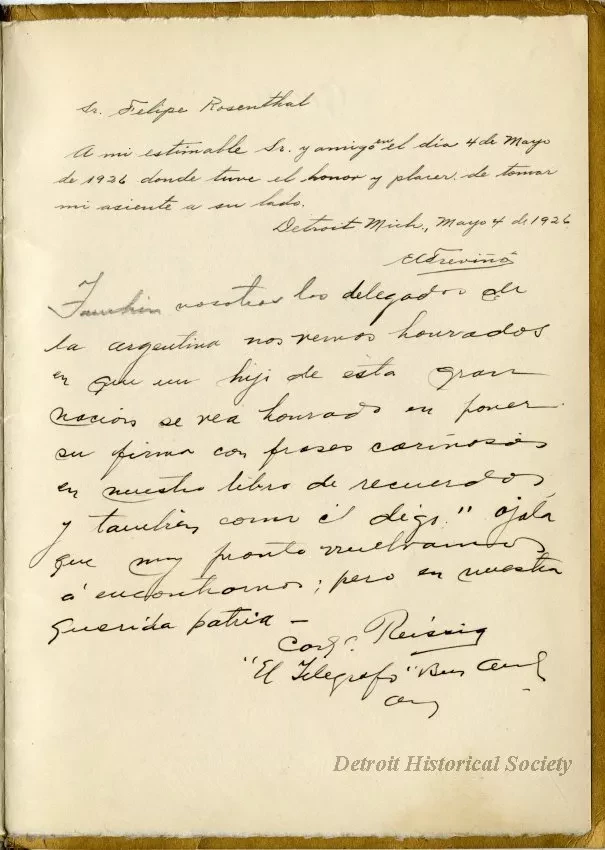 Sr. Felipe Rosenthal
A mi estimable Sr. y amigo en el dia 4 de Mayo
de 1926 donde tuve el honor y placer de tomar
mi asiente a su lado.
Detroit Mich., Mayo 4 de 1926
Treviño
Tambien nosotros los delegados de
la argentina nos vemos honrados
en que un hijo de esta gran
nacion se vea honrado en poner
su firma con frases cariñosas
en nuestro libro de recuerdos,
y tambien como él digo." Ojala
que muy pronto vuelvamos
á encontrarnos; pero en nuestra
querida patria —
Reissig
"El Telegrafo"
Detroit Historical Society